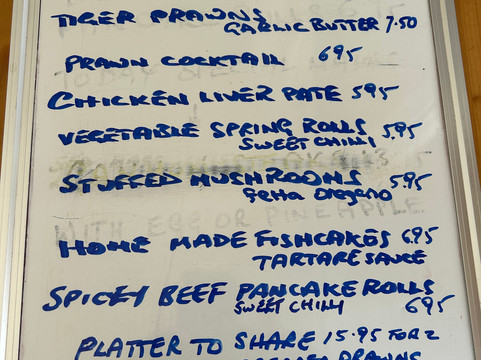 TIGER PRAWNS
GARLIC BUTTER 7.50
PRAWN COCKTAIL 695
CHICKEN LIVER PATE 595
VEGETABLE SPRING ROLLS 5.95
SWEET CHILLI
STUFFED MUSHROOMS 5.95
Fetta Oregano
HOME MADE FISHCAKES 6.95
TARTARE SAUCE
SPICEY BEEF PANCAKE ROLLS
SWEET CHILLI 695
PLATTER TO SHARE 15.95 FOR 2
PRAWNS
WITH EGG OR PINEAPPLE